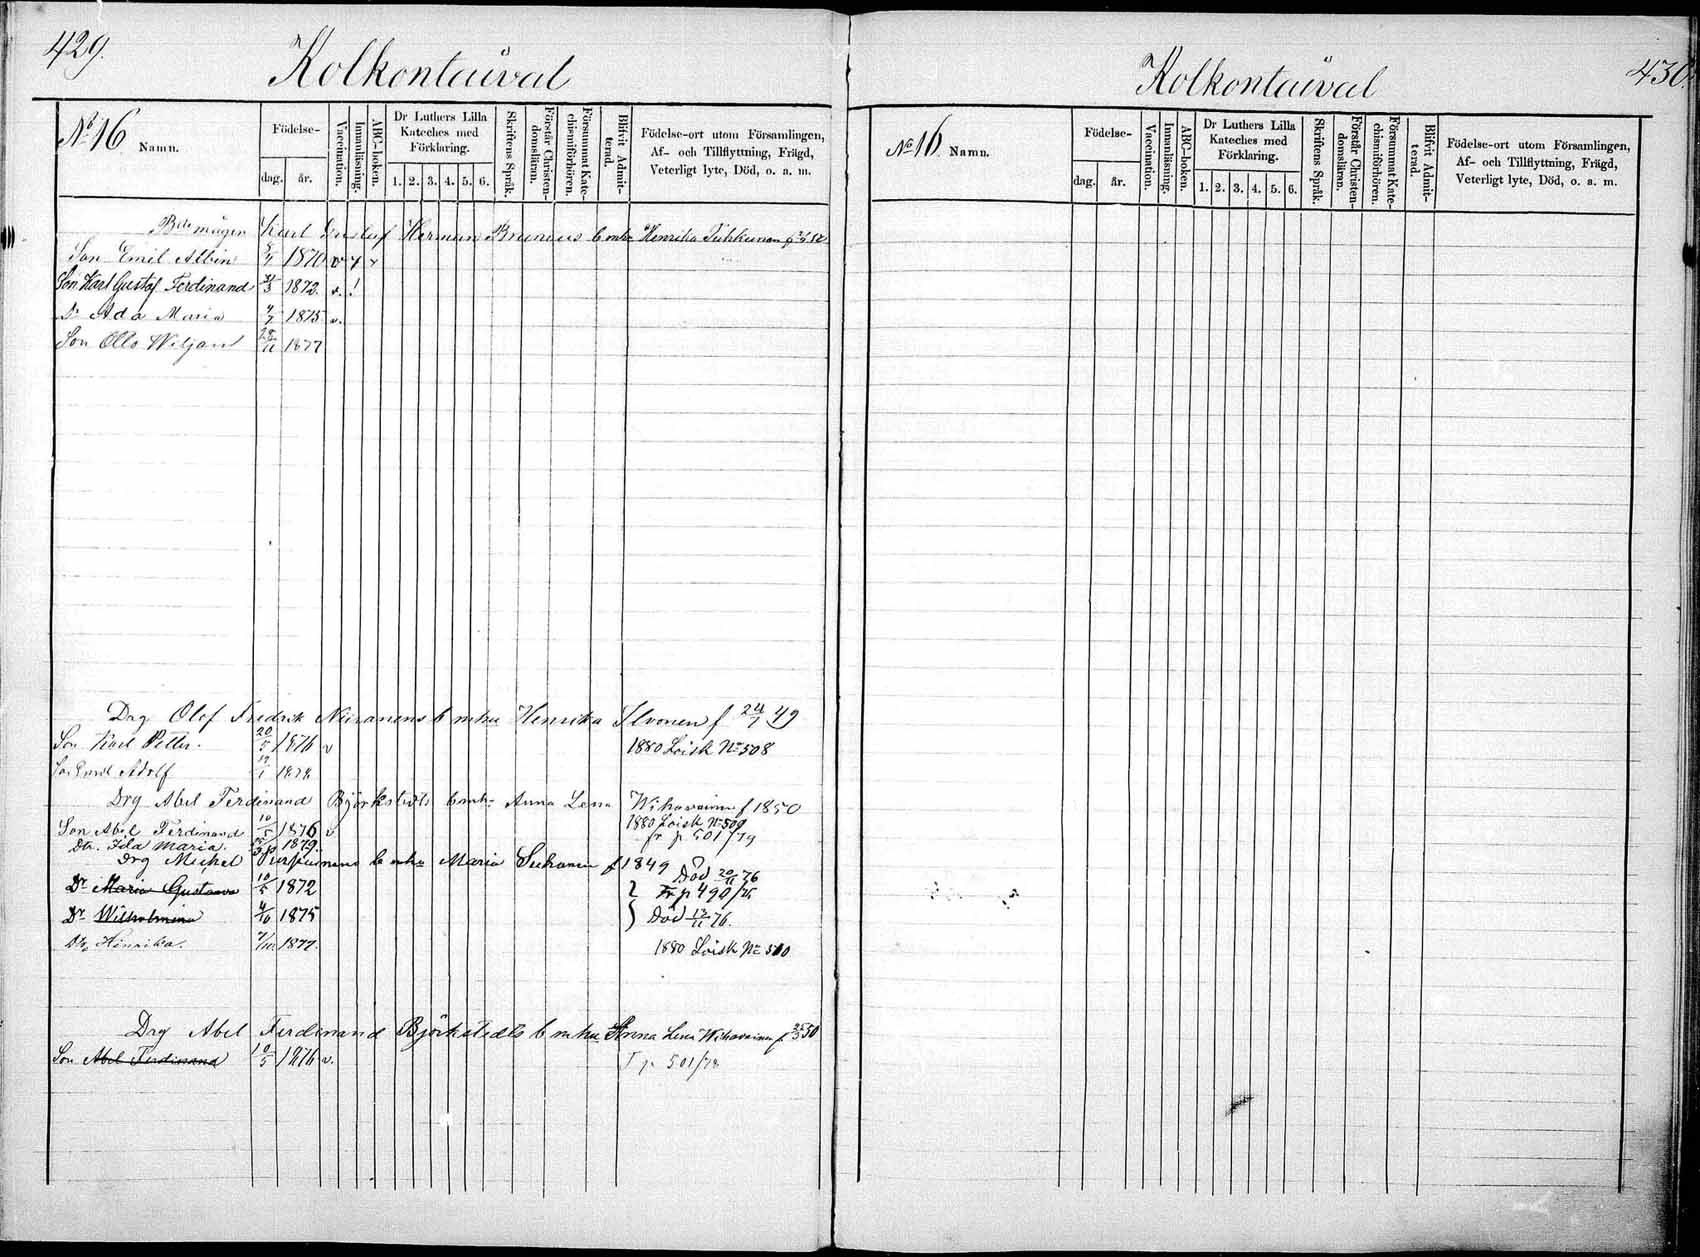 429.
Kolkontaival
No 16 Namn.
Födelse-
dag. år.
Vaccination.
Innanläsning.
ABC-boken.
Dr Luthers Lilla Kateches med Förklaring.
1. 2. 3. 4. 5. 6.
Skriftens Språk.
Förstår Christendomsläran.
Försummat Katechismiförhören.
Blifvit Admitterad.
Födelse-ort utom Församlingen,
Af- och Tillflyttning, Frägd,
Veterligt lyte, Död, o. a. m.
Karl Gustaf Herman Brunius Henrika
Son Emil Albin 1870 v
Son Karl Gustaf Ferdinand 31/3 1872. v. !
Dr Ada Maria 1875 v.
Son Otto Wiljam 28/11 1877
Drg Olof Fredrik Henrika Ilvonen f 24/7 49
Son Karl Petter. 20/5 1876 v 1880 Loisk No 508
Son Emil Adolf
Drg Abel Ferdinand Björkstedts Anna Lena f 1850
Son Abel Ferdinand 10/5 1876 v 1880 Loisk No 509
fr p 501/79
Dtr. Ida Maria. 1879.
Drg Michel Maria f 1849
Dr Maria Gustaava 10/5 1872 Död 20/11 76
Fr p 490/75
Dr Wilhelmina 4/10 1875 Död 12/11 76.
Henrika. 1877. 1880 Loisk No 510
Drg Abel Ferdinand Björkstedts Anna Lena 50
Son Abel Ferdinand 10/5 1876 v. 501/78
430.
Kolkontaival
No 16. Namn.
Födelse-
dag. år.
Vaccination.
Innanläsning.
ABC-boken.
Dr Luthers Lilla Kateches med Förklaring.
1. 2. 3. 4. 5. 6.
Skriftens Språk.
Förstår Christendomsläran.
Försummat Katechismiförhören.
Blifvit Admitterad.
Födelse-ort utom Församlingen,
Af- och Tillflyttning, Frägd,
Veterligt lyte, Död, o. a. m.